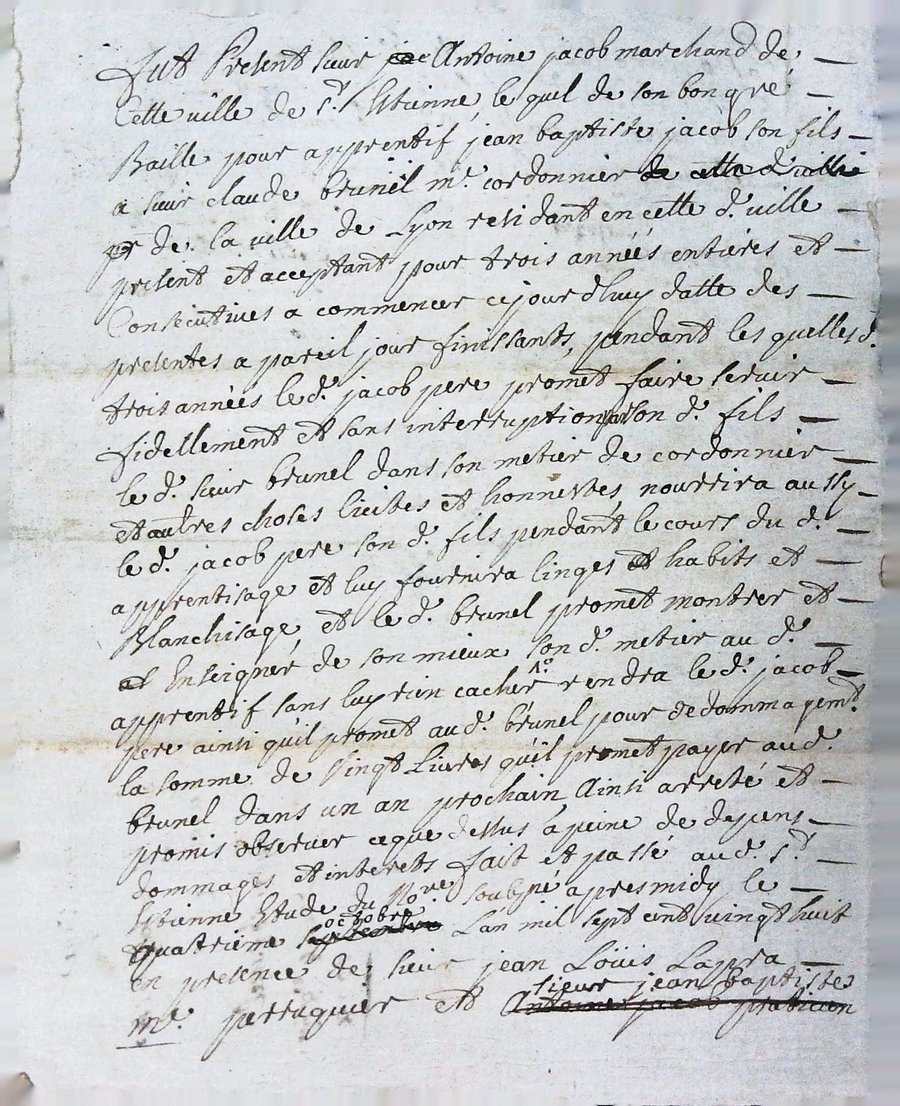 Fut Present sieur Antoine jacob marchand de
Cette ville de St. Etienne, le quel de son bon gré
Baille pour apprentif jean baptiste jacob son fils
a sieur claude brunel me. cordonnier de cette d. ville
de la ville de Lyon residant en cette d. ville
present et acceptant pour trois années entieres et
Consecutives a commencer cejourdhuy datte des
presentes a pareil jour finissants, pendant les quelles d.
trois années le d. jacob pere promet faire servir
fidellement et sans interruption par son d. fils
le d. sieur brunel dans son metier de cordonnier
et autres choses licites et honnestes, nourrira aussy
le d. jacob pere son d. fils pendant le cours du d.
apprentisage et luy fournira linges et habits et
Blanchisage, et le d. brunel promet montrer et
Enseigner de son mieux son d. metier au d.
apprentif sans luy rien cacher rendra le d. jacob
pere ainsi qu'il promet au d. brunel pour dedommagemt.
la somme de Vingt Livres qu'il promet payer au d.
brunel dans un an prochain, Ainsi arreté et
promis observer ceque dessus a peine de depens
dommages et interets fait et passé au d. St.
Etienne Etude du Nore. soubsné apresmidy le
quatrieme septembre octobre L'an mil sept cent vingt huit
en presence de sieur jean Loüis Lapra
me. perruquier et Antoine jacob praticien sieur jean baptiste